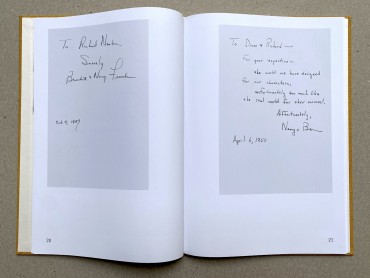 To Richard
Sincerely
Benedict & Nancy Freedman
Oct 9, 1947
20
To Diane & Richard —
For your inspection:
the world we have designed
for our characters,
unfortunately too much like
the real world for their survival.
Affectionately,
Nancy & Ben
April 6, 1950
21